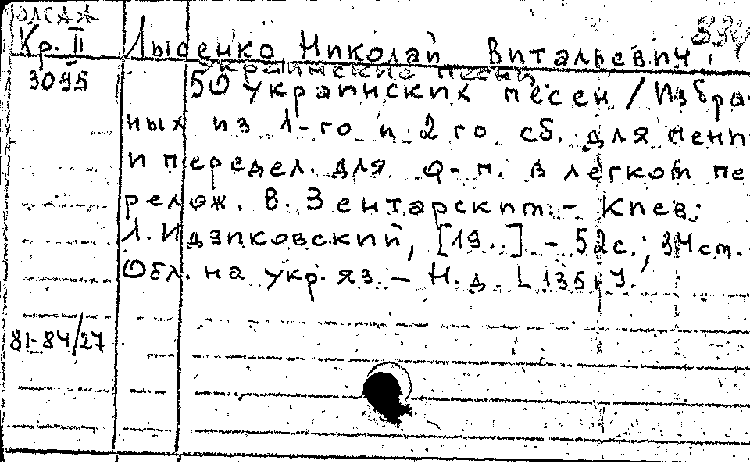 Кр. II Лысенко Николай Витальевич.
3095 украинские песни
50 украинских песен / Избра-
ных из 1-го и 2 го сб. для пения
и передел. для ф-п. в легком пе-
релож. В. Зентарским. - Киев:
Л. Идзиковский, [19..] - 52 с.; 34 см. -
Обл. на укр. яз. - Н. д. L 1351 J.
81-84/27